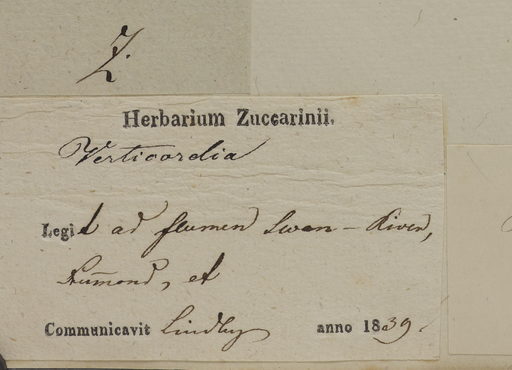 Z.
Herbarium Zuccarinii.
Verticordia
Legit ad flumen Swan-River,
Drum̄ond, et
Communicavit Lindley anno 1839.